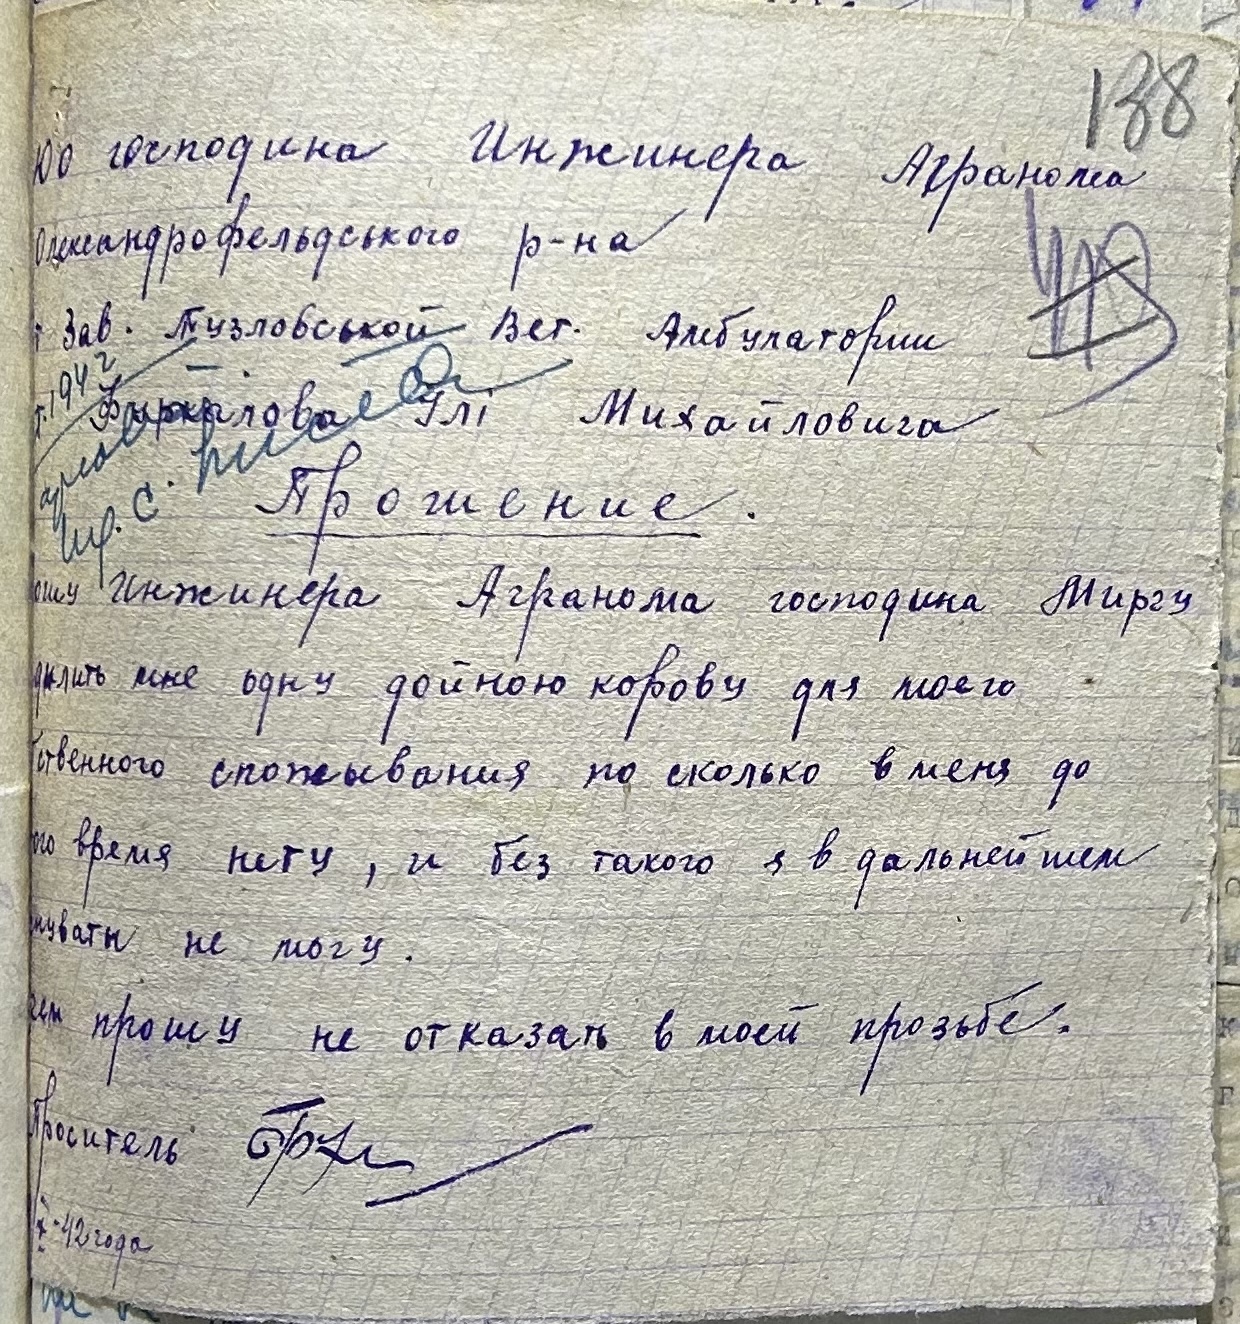 188
До господина Инжинера Агранома
418
Олександрофельдського р-на
Зав. Тузловськой Вет. Амбулатории
1942
Ілі Михайловича
Прошение.
Инжинера Агранома господина Миргу
делить мне одну дойною корову для моего
бственного спожывания по сколько в меня до
ого время нету, и без такого я в дальнейшем
нувати не могу.
чем прошу не отказать в моей прозьбе.
Проситель
X-42 года